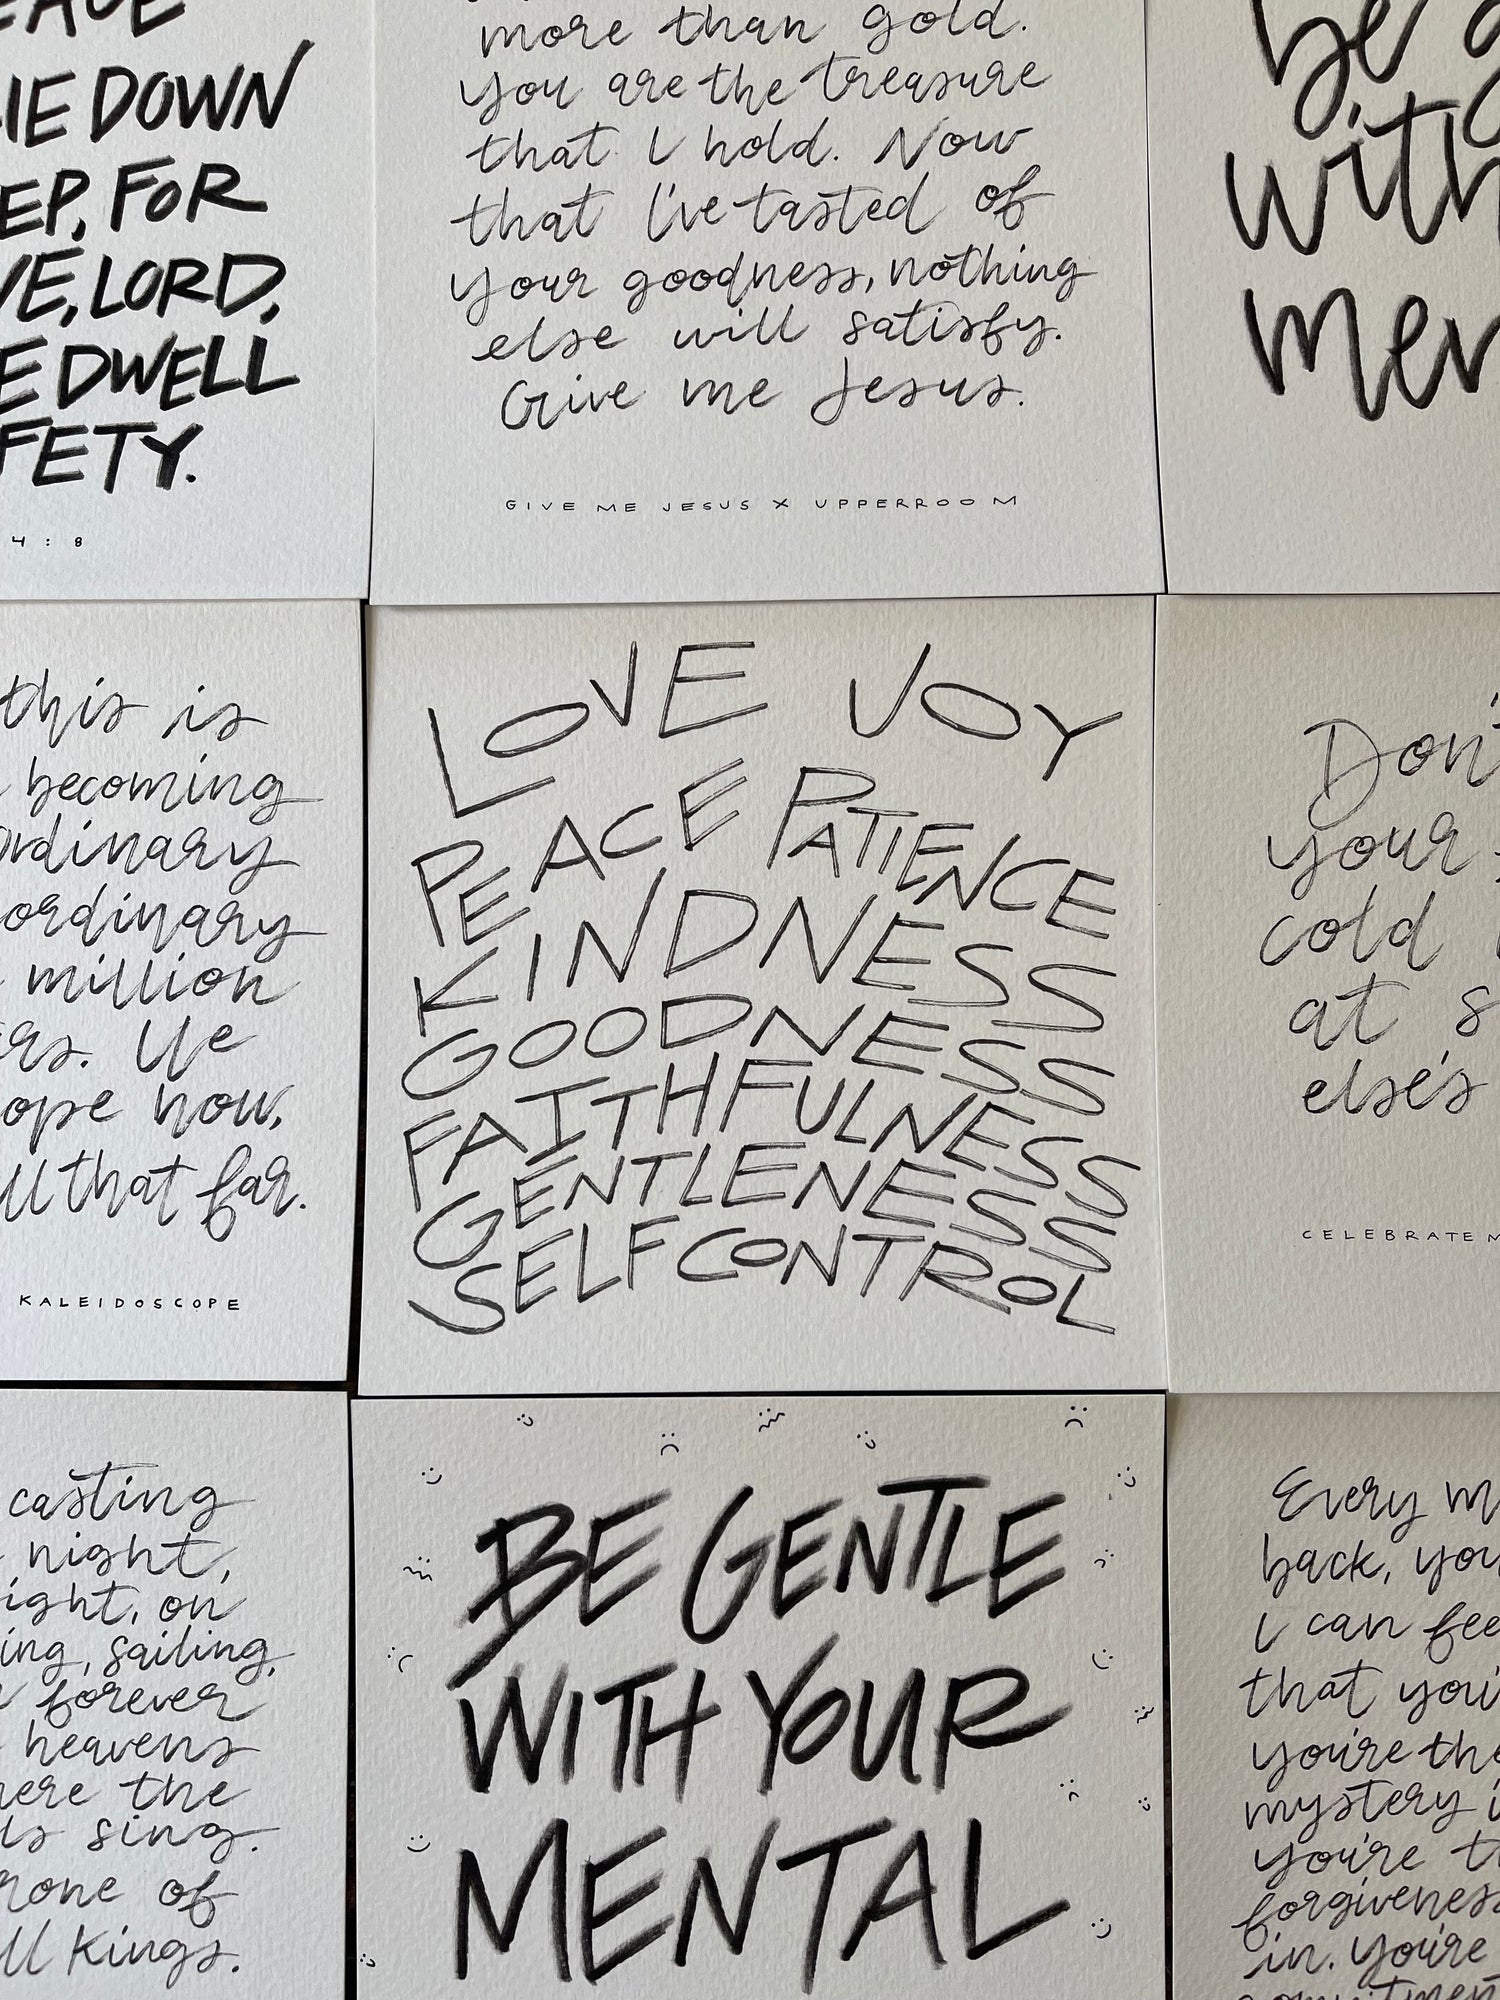 DOWN
FOR
LORD,
DWELL
4:8
more than gold.
you are the treasure
that I hold. Now
that I've tasted of
your goodness, nothing
else will satisfy.
Give me Jesus.
GIVE ME JESUS X UPPERROOM
be
with
this is
becoming
ordinary
million
We
now,
that far.
KALEIDOSCOPE
LOVE JOY
PEACE PATIENCE
KINDNESS
GOODNESS
FAITHFULNESS
GENTLENESS
SELF CONTROL
Don't
your
cold
at
else's
CELEBRATE
casting
night,
on
sailing,
forever
heavens
the
sing.
of
Kings.
BE GENTLE
WITH YOUR
MENTAL
Every
back, you
I can
that you're
you're the
mystery
you're
forgiveness
in. You're